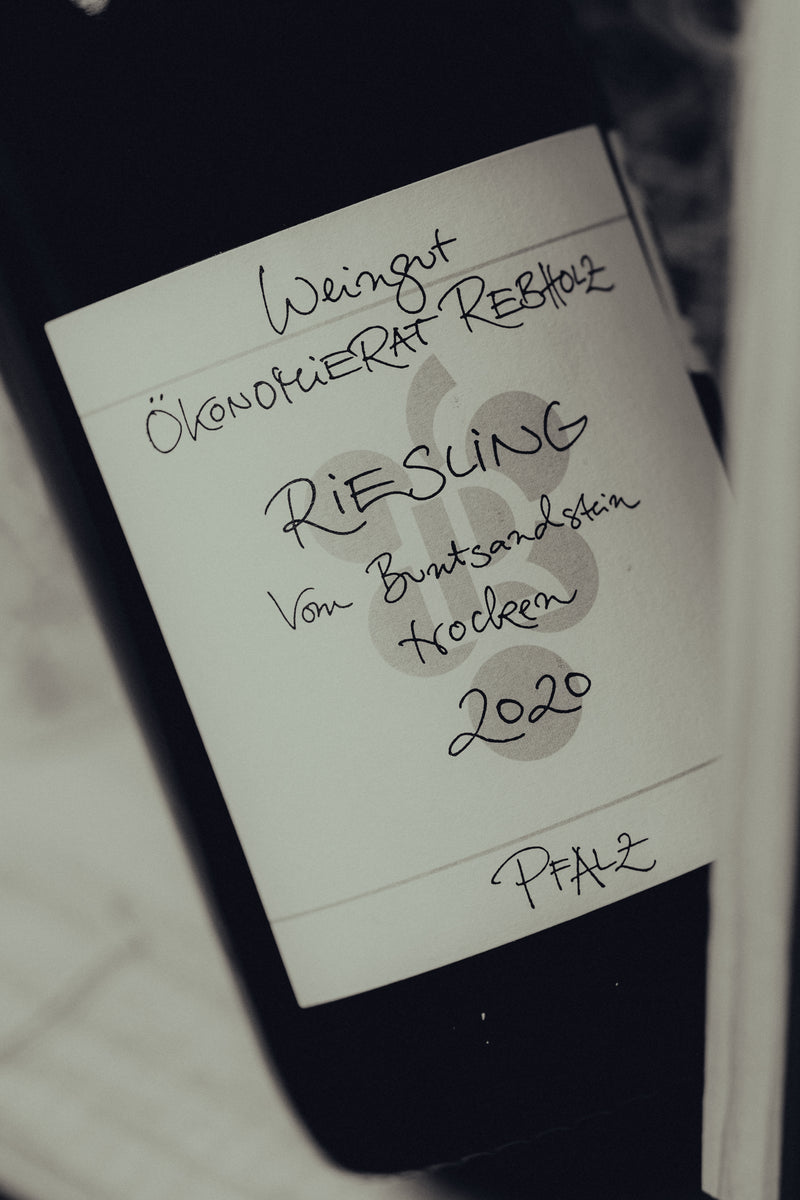 Weingut
ÖKONOMiERAT REBHOLZ
RiESLiNG
Vom Buntsandstein
trocken
2020
PFALZ